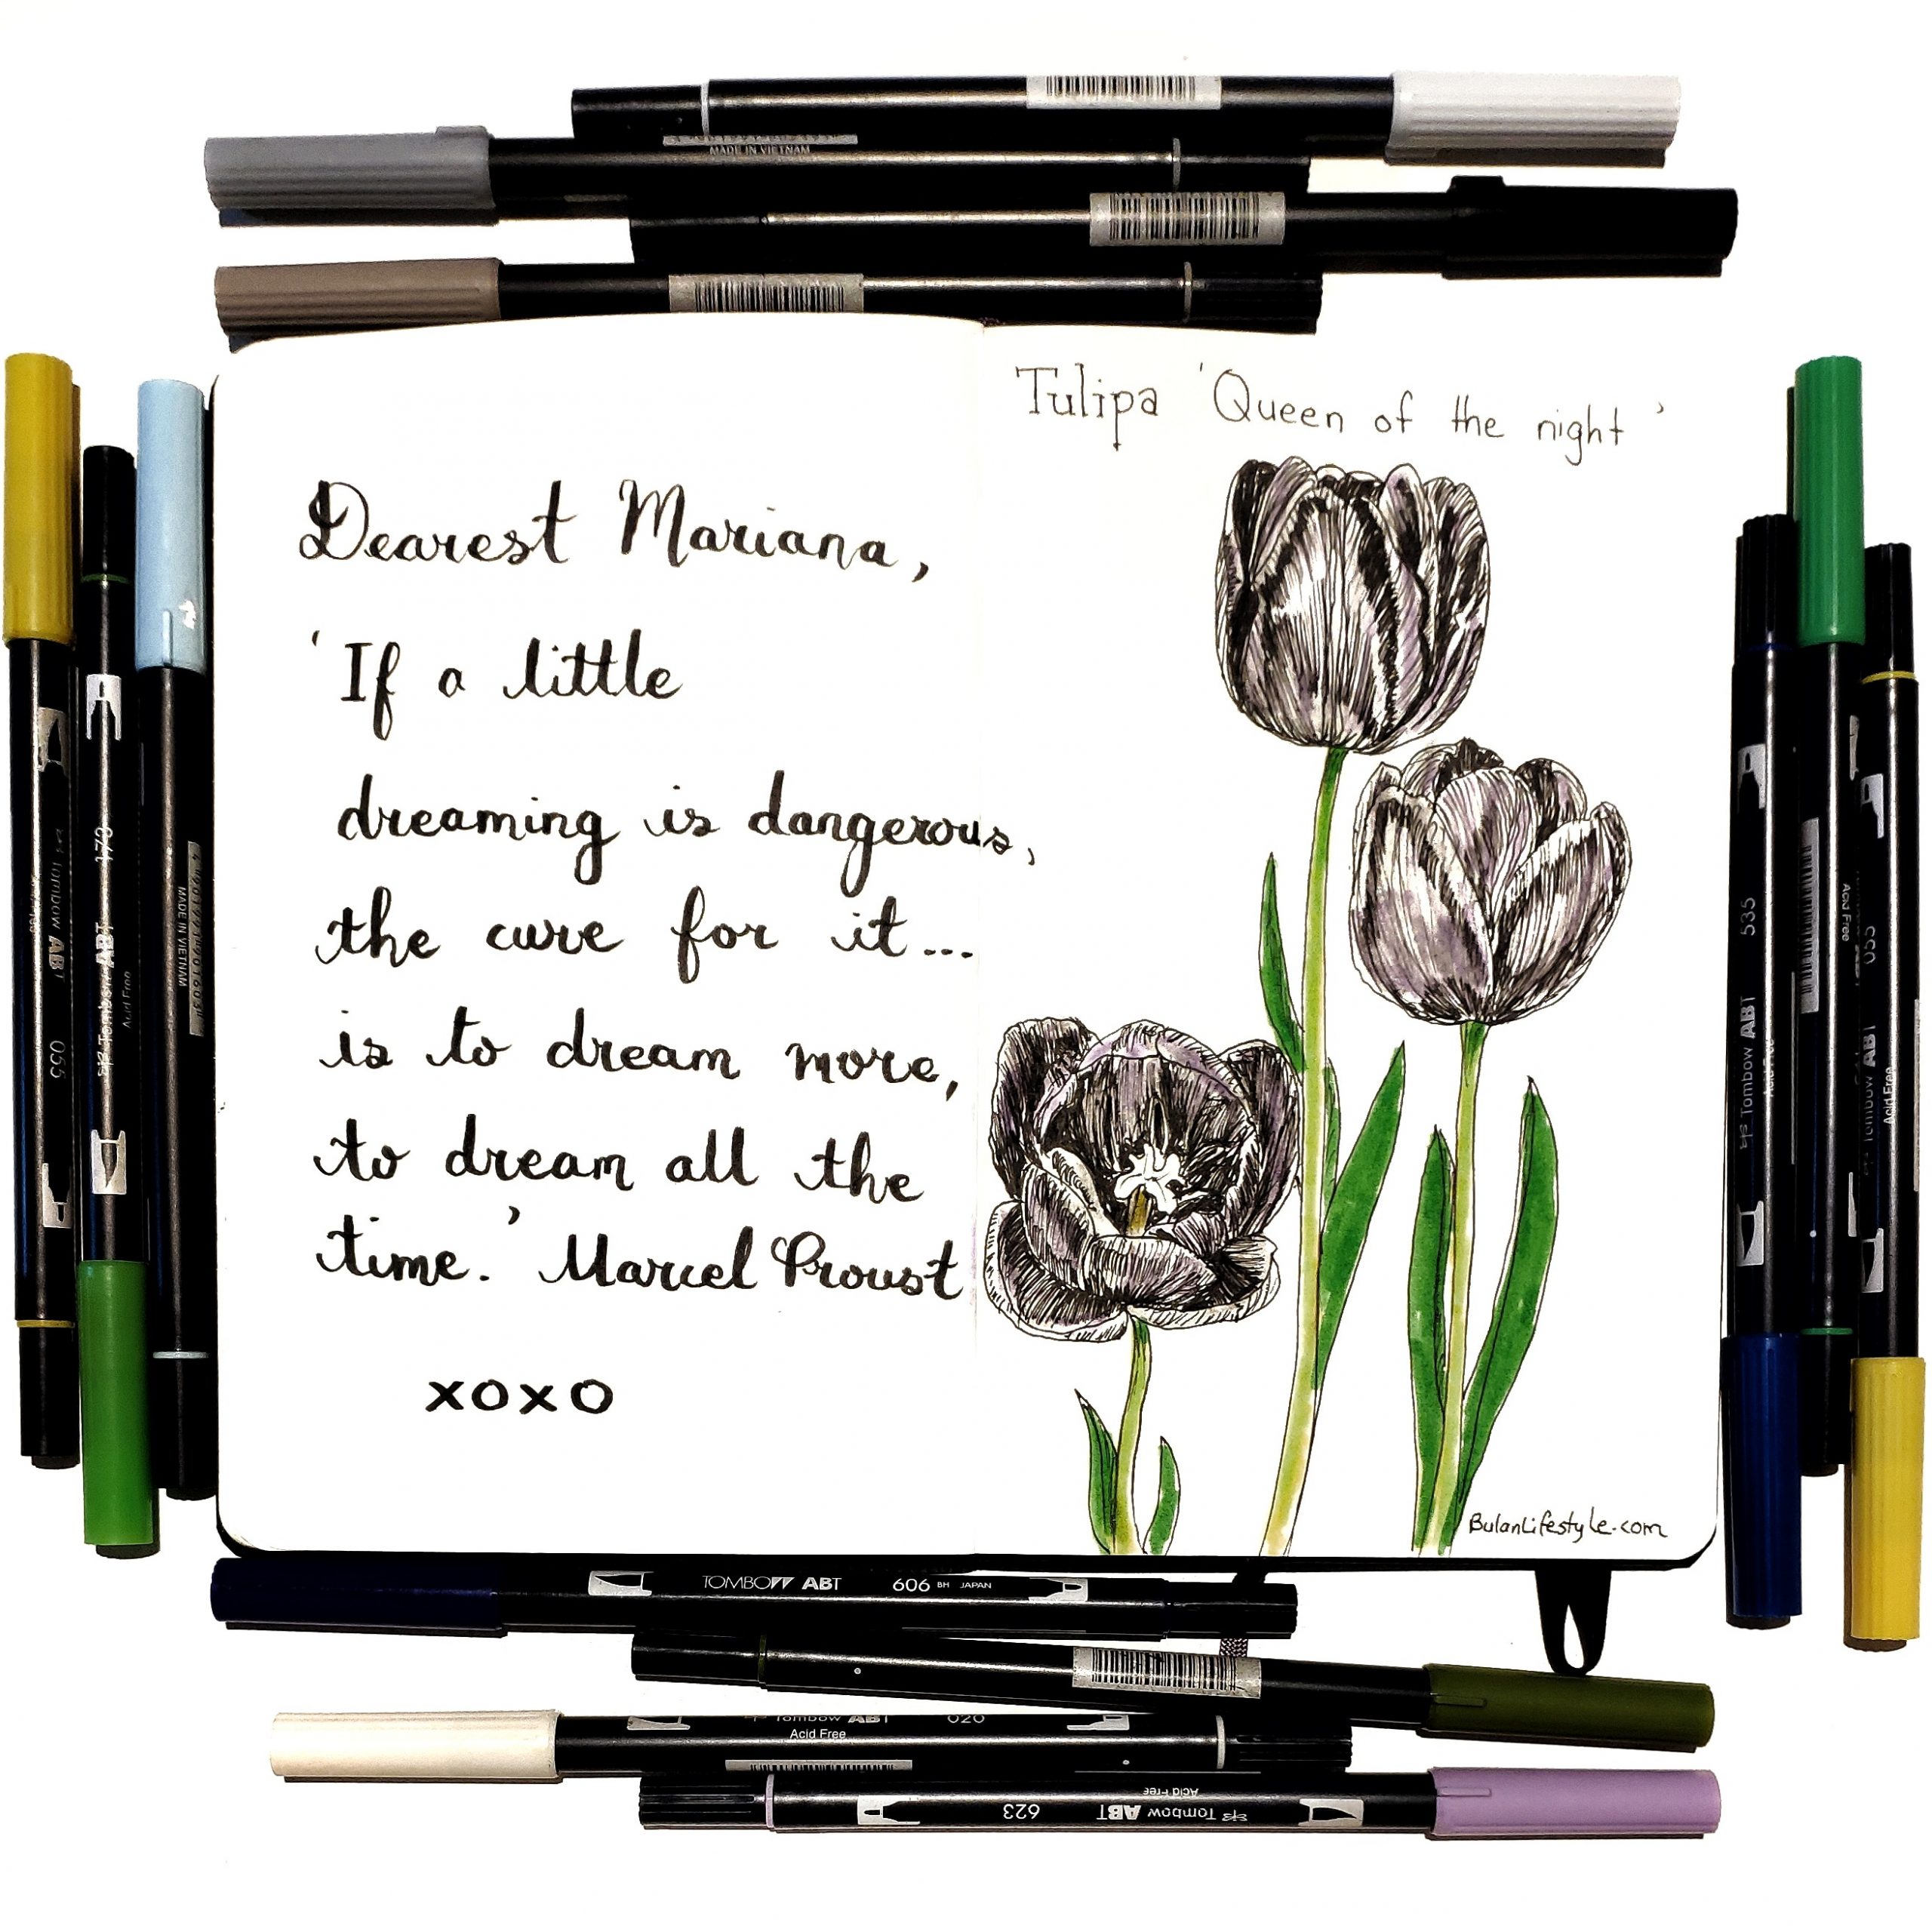 MADE IN VIETNAM
Dearest Mariana,
'If a little
dreaming is dangerous,
the cure for it...
is to dream more,
to dream all the
time.' Marcel Proust
xoxo
Tulipa 'Queen of the night'
BulanLifestyle.com
Tombow ABT 055
Tombow ABT 173
Acid Free
MADE IN VIETNAM
535
Tombow ABT
Acid Free
Acid Free
055
Tombow ABT
Acid Free
TOMBOW ABT 606 BH JAPAN
Tombow ABT 020
Acid Free
Tombow ABT 623
Acid Free